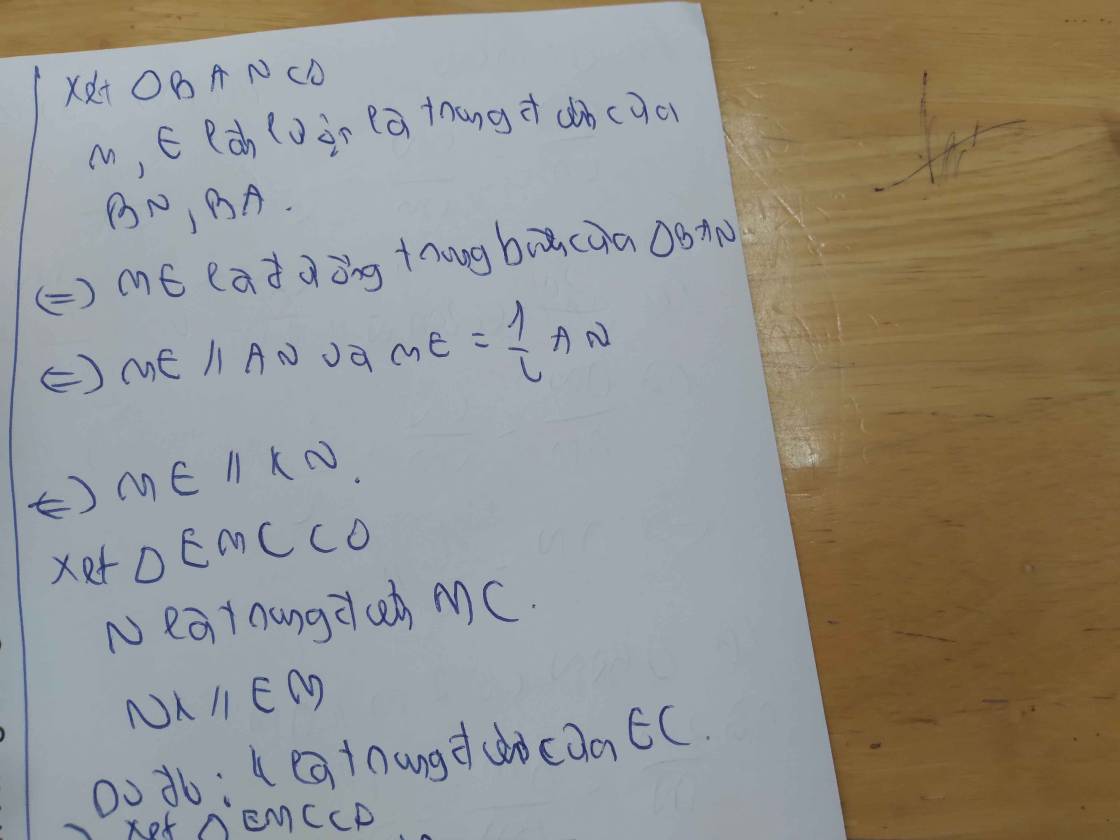 Xét Δ BAN CÓ
M, E lần lượt là trung điểm của
BN, BA.
(=) ME là đường trung bình của Δ BAN
(=) ME // AN và ME = 1/2 AN
(=) ME // KN.
Xét Δ EMC CÓ
N là trung điểm MC.
NK // EM
Do đó: K là trung điểm của EC.
Xét Δ EMC CÓ